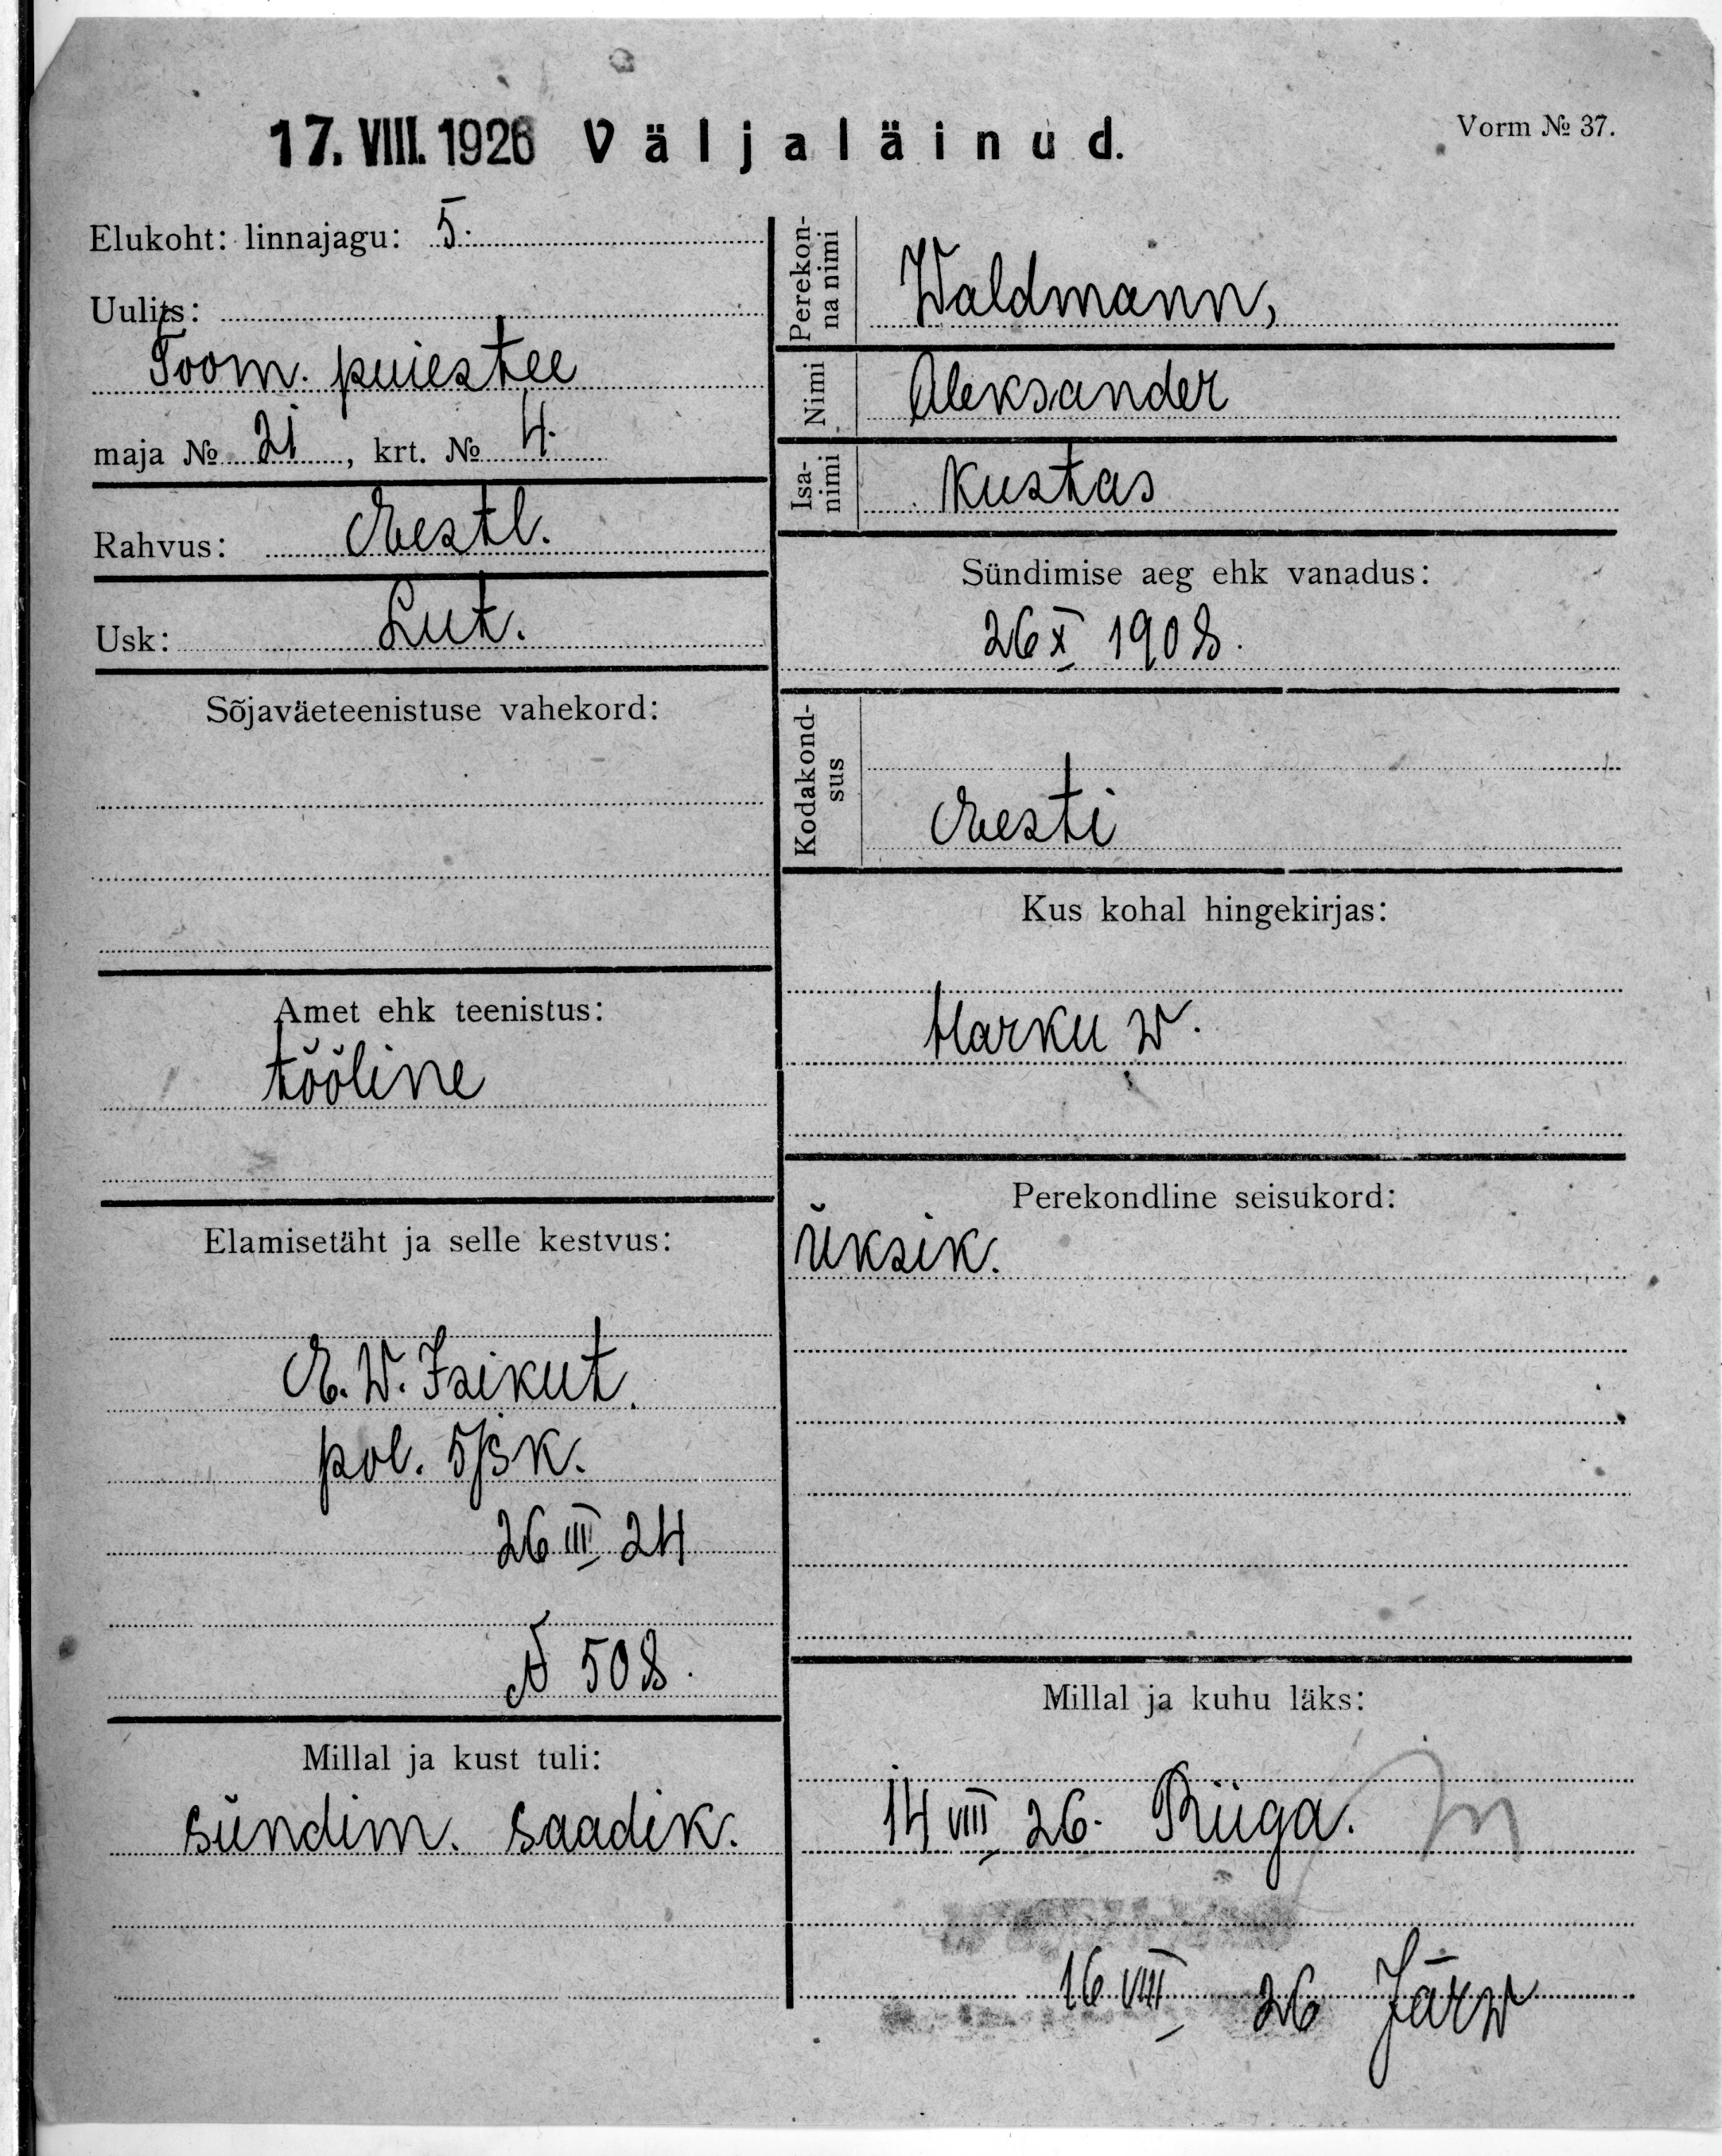 17. VIII. 1926 Väljaläinud.
Vorm № 37.
Elukoht: linnajagu: 5.
Uulits:
Toom. puiestee
maja № 21, krt. № 4.
Rahvus: Eestl.
Usk: Lut.
Sõjaväeteenistuse vahekord:
Amet ehk teenistus:
tööline
Elamisetäht ja selle kestvus:
E. W. Isikut.
pol. 5/jsk.
26 III 24
N 508.
Millal ja kust tuli:
sündim. saadik.
Perekon-
na nimi
Waldmann,
Nimi
Aleksander
Isa-
nimi
Kustas
Sündimise aeg ehk vanadus:
26 X 1908.
Kodakond-
sus
Eesti
Kus kohal hingekirjas:
Harku w.
Perekondline seisukord:
Üksik.
Millal ja kuhu läks:
14 VIII 26. Riiga.
16 VIII 26 Järw